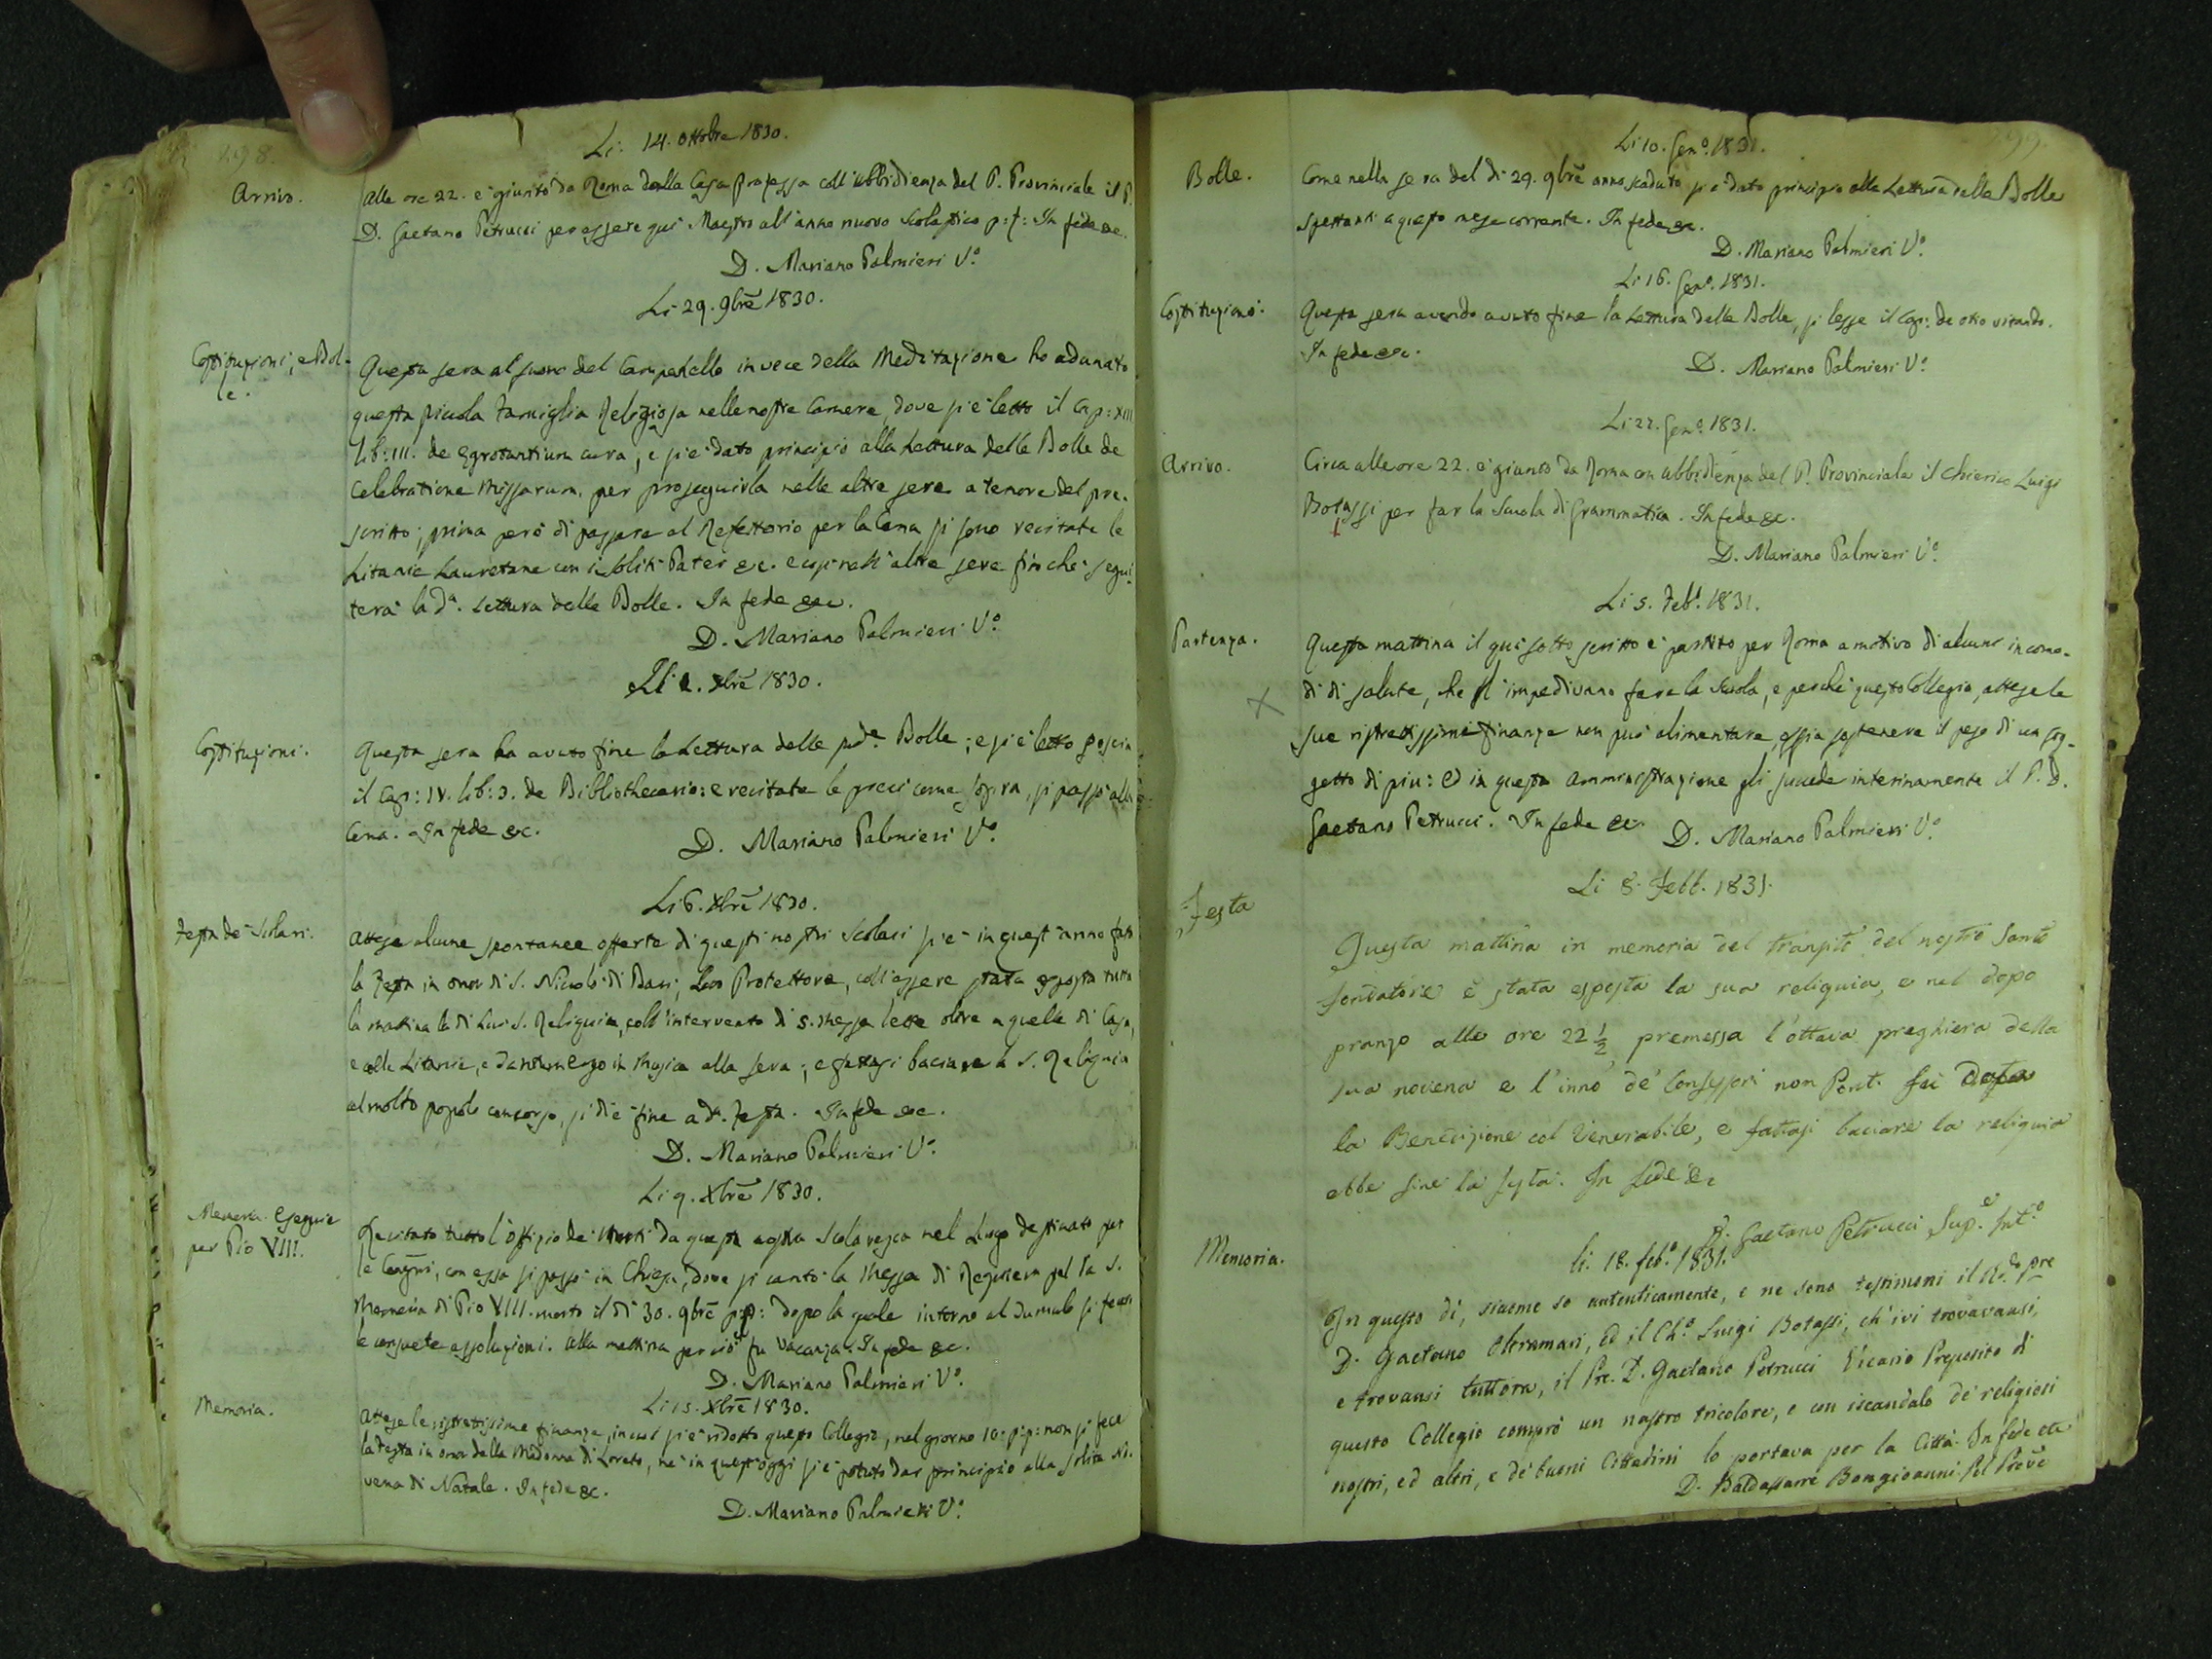 298.
Li 14. Ottobre 1830.
Arrivo.
Alle ore 22. è giunto da Roma dalla Casa professa coll'ubbidienza del P. Provinciale il P.
D. Gaetano Petrucci per essere qui Maestro all'anno nuovo Scolastico p: f: In fede &c.
D. Mariano Palmieri V.o
Li 29. 9bre 1830.
Costituzioni, e Bol-
le.
Questa sera al suono del Campanello in vece della Meditazione ho adunato
questa piccola Famiglia Religiosa nelle nostre Camere, dove si è letto il Cap: XIII
lib: III. de Egrotantium cura, e si è dato principio alla Lettura delle Bolle de
Celebratione Missarum, per proseguirla nelle altre sere a tenore del pre-
scritto; prima però di passare al Refettorio per la Cena si sono recitate le
Litanie Lauretane con i soliti Pater &c. e così nell'altre sere finchè segui-
terà la d.a Lettura delle Bolle. In fede &c.
D. Mariano Palmieri V.o
Li 2. Xbre 1830.
Costituzioni.
Questa sera ha avuto fine la Lettura delle sud.e Bolle; e si è letto poscia
il Cap: IV. lib: 3. de Bibliothecario: e recitate le preci come sopra, si passò alla
Cena. In fede &c.
D. Mariano Palmieri V.o
Li 6. Xbre 1830.
Festa de' Scolari.
Attese alcune spontanee offerte di questi nostri Scolari si è in quest'anno fatta
la Festa in onor di S. Nicolò di Bari, Loro Protettore, coll'essere stata esposta tutta
la mattina la di Lui S. Reliquia, coll'intervento di 5. Messe lette oltre a quelle di Casa,
e colle Litanie, e Tantum ergo in Musica alla sera; e fattasi baciare la S. Reliquia
al molto popolo concorso, si diè fine a d.a Festa. In fede &c.
D. Mariano Palmieri V.o
Li 9. Xbre 1830.
Memoria. Esequie
per Pio VIII.
Recitato tutto l'Offizio de' Morti da questa nostra Scolaresca nel Luogo destinato per
le Congni, con essa si passò in Chiesa, dove si cantò la Messa di Requiem pel la S.
Memoria di Pio VIII. morto il dì 30. 9bre p:p: dopo la quale intorno al Tumulo si fecero
le consuete assoluzioni. Alla mattina perciò fu Vacanza. In fede &c.
D. Mariano Palmieri V.o
Li 15. Xbre 1830.
Memoria.
Attese le ristrettissime finanze, in cui si è ridotto questo Collegio, nel giorno 10: p:p: non si fece
la Festa in onor della Madonna di Loreto, nè in quest'oggi si è potuto dar principio alla solita No-
vena di Natale. In fede &c.
D. Mariano Palmieri V.o
299.
Li 10. Gen.o 1831.
Bolle.
Come nella sera del dì 29. 9bre anno scaduto si è dato principio alla Lettura delle Bolle
spettanti a questo mese corrente. In fede &c.
D. Mariano Palmieri V.o
Li 16. Gen.o 1831.
Costituzioni.
Questa sera avendo avuto fine la Lettura delle Bolle, si lesse il Cap: de otio vitando.
In fede &c.
D. Mariano Palmieri V.o
Li 22. Gen.o 1831.
Arrivo.
Circa alle ore 22. è giunto da Roma con ubbidienza del P. Provinciale il Chierico Luigi
Botassi per far la Scuola di Grammatica. In fede &c.
D. Mariano Palmieri V.o
Li 5. Feb.o 1831.
Partenza.
Questa mattina il qui sottoscritto è partito per Roma a motivo di alcuni incomo-
di di salute, che gl'impedivano fare la Scuola, e perchè questo Collegio, attese le
sue ristrettissime finanze non può alimentare, ossia sostenere il peso di un sog-
getto di più: E in questa amministrazione gli succede interinamente il P. D.
Gaetano Petrucci. In fede &c. D. Mariano Palmieri V.o
Li 8. Febb. 1831.
Festa
Questa mattina in memoria del transito del nostro Santo
Fondatore è stata esposta la sua reliquia, e nel dopo
pranzo alle ore 22 1/2 premessa l'ottava preghiera della
sua novena e l'inno de' Confessori non Pont. fu data
la Benedizione col Venerabile, e fattasi baciare la reliquia
ebbe fine la festa. In fede &c
D. Gaetano Petrucci Sup.e Int.o
li. 18. feb.o 1831.
Memoria.
In questo dì, siccome so autenticamente, e ne sono testimoni il R.do Pre
D. Gaetano Oltramari, ed il Ch.o Luigi Botassi, ch'ivi trovavansi,
e trovansi tuttora, il Pre. D. Gaetano Petrucci Vicario Preposito di
questo Collegio comprò un nastro tricolore, e con iscandalo de' religiosi
nostri, ed altri, e de' buoni Cittadini lo portava per la Città. In fede etc
D. Baldassarre Bongioanni Pel Preve